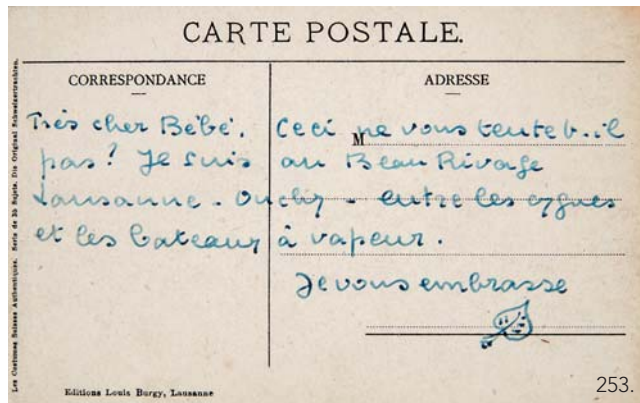 CARTE POSTALE.
CORRESPONDANCE
ADRESSE
M
Très cher Bébé. Ceci ne vous tente t-il
pas ? Je suis au Beau Rivage
Lausanne - Ouchy - entre les cygnes
et les bateaux à vapeur.
Je vous embrasse
Les Costumes Suisses Authentiques. Serie de 35 Sujets. Die Original Schweizertrachten.
Editions Louis Burgy, Lausanne
253.